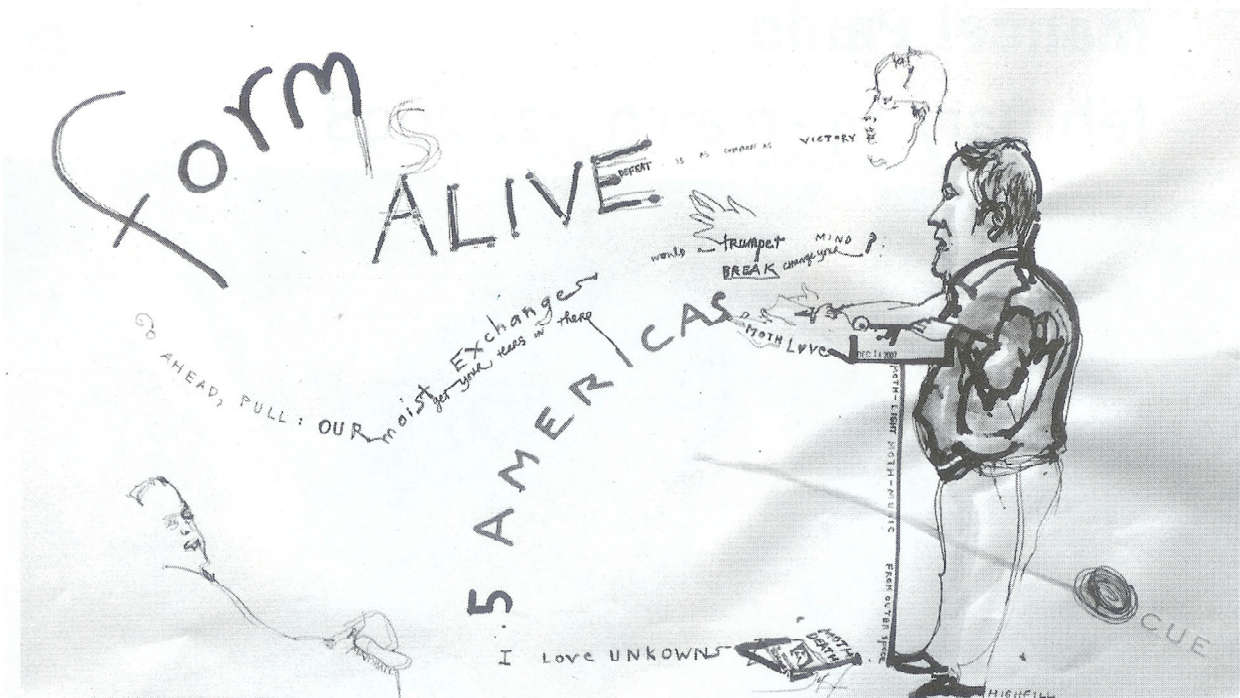 form
IS
ALIVE.
DEFEAT IS AS COMMON AS VICTORY
would a trumpet
BREAK change your MIND?
GO AHEAD, PULL: OUR moist Exchange
get your tears in there
5 AMERICAS
MOTH LOVE
DEC 11 2007
MOTH-LIGHT MOTH-MUSIC FROM OUTER SPACE
CUE
I LOVE UNKOWNS
MOTH
DEATH
HIGHFILL